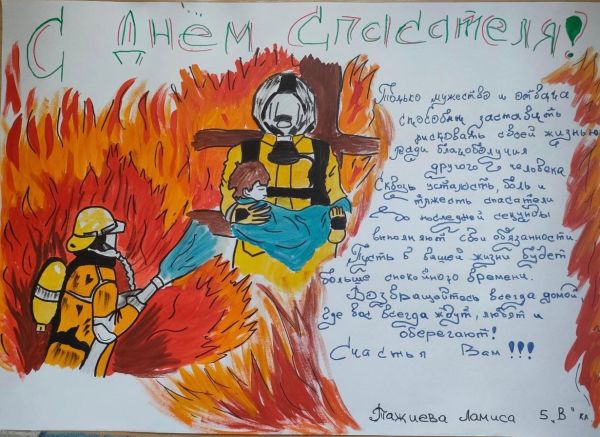 С Днём Спасателя!
Только мужество и отвага
способны заставить
рисковать своей жизнью
ради благополучия
другого человека
Сквозь усталость, боль и
тяжесть спасатели
до последней секунды
выполняют свои обязанности.
Пусть в вашей жизни будет
больше спокойного времени.
Возвращайтесь всегда домой,
где вас всегда ждут, любят и
оберегают!
Счастья Вам!!!
Пажиева Ламиса 5 „В" кл